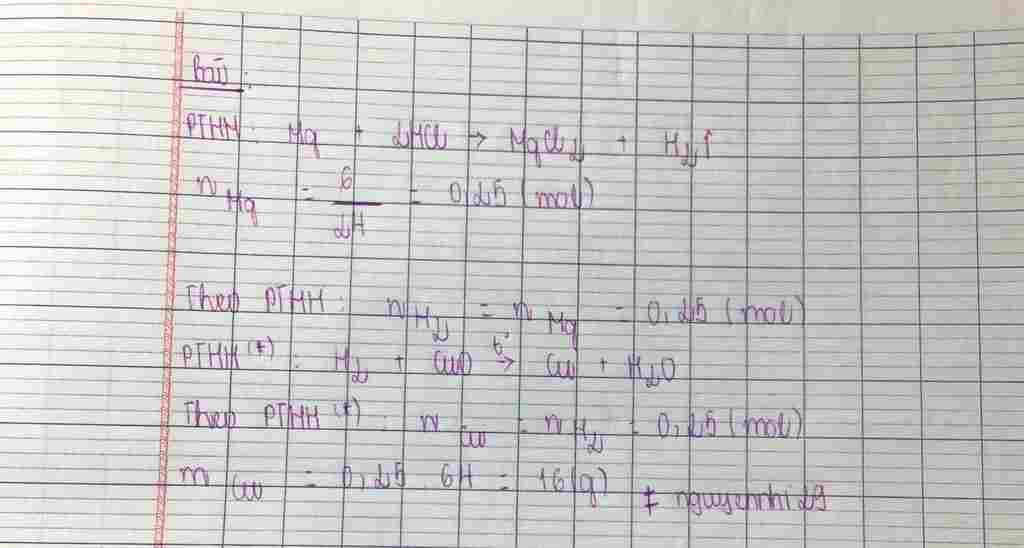 Bài:
PTHH: Mg + 2HCl → MgCl2 + H2↑
n Mg = 6/24 = 0,25 (mol)
Theo PTHH: n H2 = n Mg = 0,25 (mol)
PTHH (*): H2 + CuO t°→ Cu + H2O
Theo PTHH (*): n Cu = n H2 = 0,25 (mol)
m Cu = 0,25 . 64 = 16 (g) # nguyennhi29